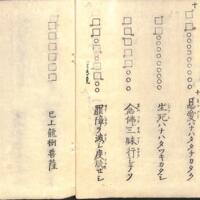 十
恩愛ハナハタタチカタク
生死ハナハタツキカタシ
念佛三昧行シテソ
罪障ヲ滅シ度脱セシ
已上龍樹菩薩